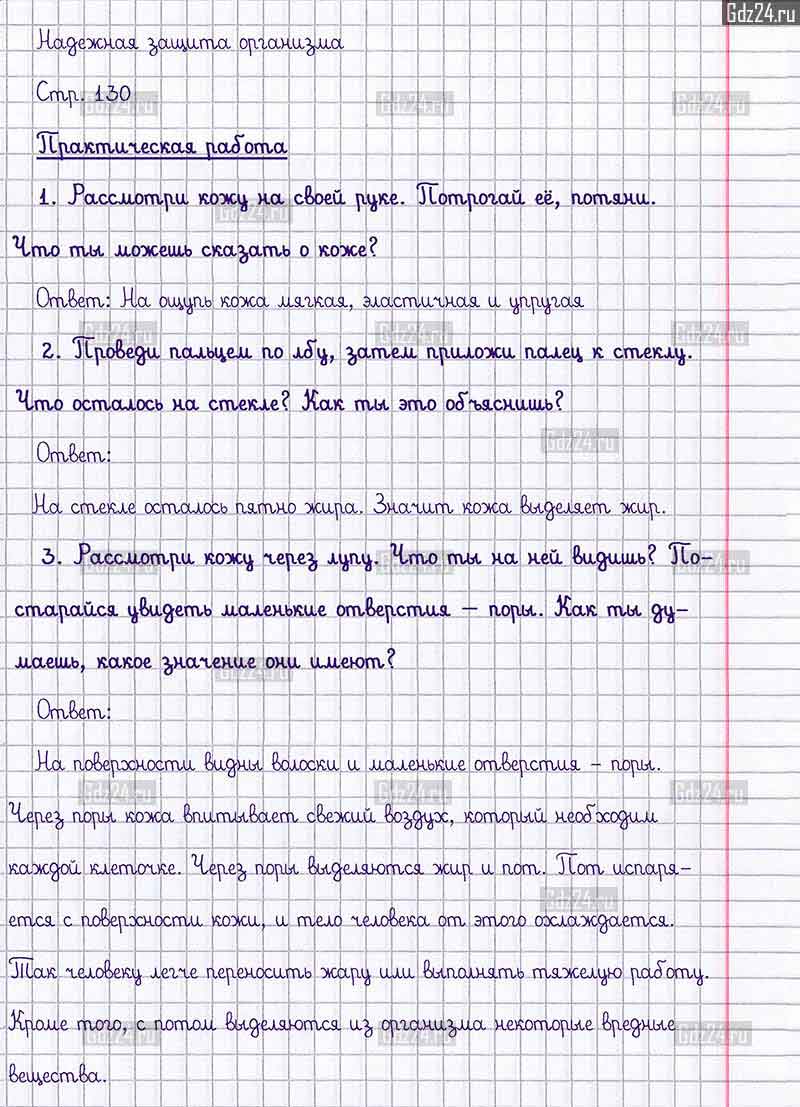 Gdz24.ru
Надежная защита организма
Стр. 130
Практическая работа
1. Рассмотри кожу на своей руке. Потрогай её, потяни.
Что ты можешь сказать о коже?
Ответ: На ощупь кожа мягкая, эластичная и упругая
2. Проведи пальцем по лбу, затем приложи палец к стеклу.
Что осталось на стекле? Как ты это объяснишь?
Ответ:
На стекле осталось пятно жира. Значит кожа выделяет жир.
3. Рассмотри кожу через лупу. Что ты на ней видишь? По-
старайся увидеть маленькие отверстия — поры. Как ты ду-
маешь, какое значение они имеют?
Ответ:
На поверхности видны волоски и маленькие отверстия - поры.
Через поры кожа впитывает свежий воздух, который необходим
каждой клеточке. Через поры выделяются жир и пот. Пот испаря-
ется с поверхности кожи, и тело человека от этого охлаждается.
Так человеку легче переносить жару или выполнять тяжелую работу.
Кроме того, с потом выделяются из организма некоторые вредные
вещества.